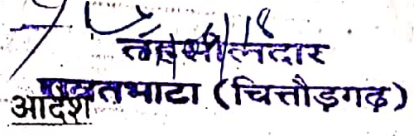 तहसीलदार
रावतभाटा (चित्तौड़गढ़)
आदेश